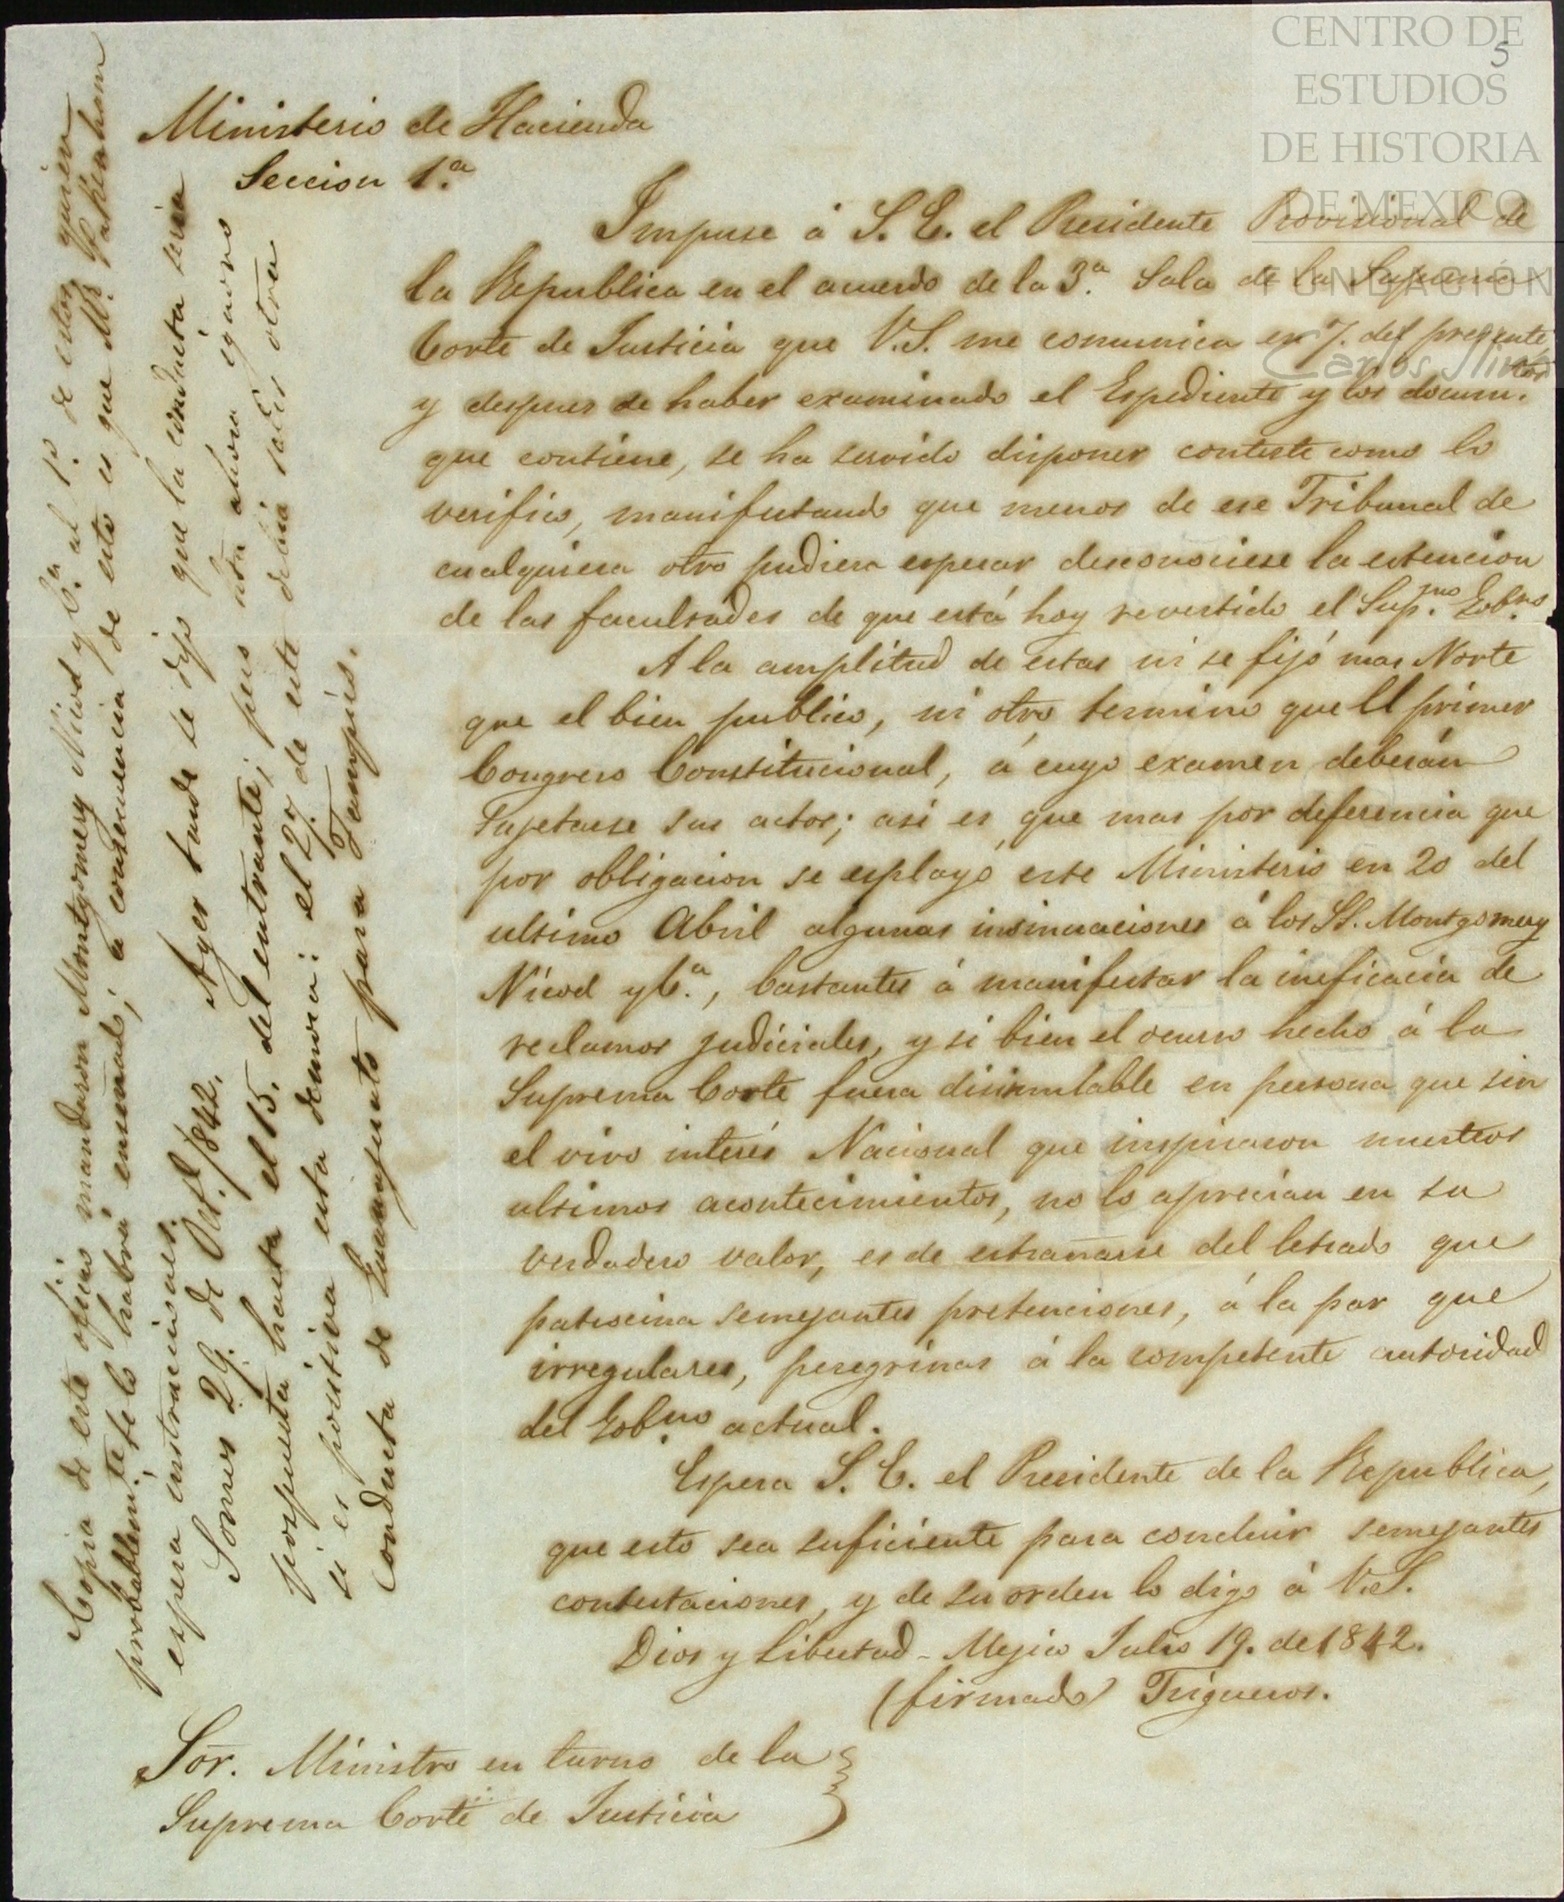 5
CENTRO DE
ESTUDIOS
DE HISTORIA
DE MEXICO
FUNDACIÓN
Carlos Slim
Ministerio de Hacienda
Seccion 1.ª
Impuse á S. E. el Presidente Provisional de
la Republica en el acuerdo de la 3.ª Sala de la Suprema
Corte de Justicia que V.S. me comunica en 7. del presente,
y despues de haber examinado el Espediente y los docum.tos
que contiene, se ha servido disponer conteste como lo
verifico, manifestando que menos de ese Tribunal de
cualquiera otro pudiera esperar desconociese la estencion
de las facultades de que está hoy revestido el Sup.mo Gob.no
A la amplitud de estas ni se fijó mas Norte
que el bien publico, ni otro termino que el primer
Congreso Constitucional, á cuyo examen deberán
sujetarse sus actos; asi es que mas por deferencia que
por obligacion se esplayó este Ministerio en 20 del
ultimo Abril algunas insinuaciones á los SS. Montgomery
Nicod y C.ª, bastantes á manifestar la ineficacia de
reclamos judiciales, y si bien el ocurso hecho á la
Suprema Corte fuera disimulable en persona que sin
el vivo interés Nacional que inspiraron nuestros
ultimos acontecimientos, no lo aprecian en su
verdadero valor, es de estrañarse del letrado que
patrocina semejantes pretenciones, á la par que
irregulares, peregrinas á la competente autoridad
del Gob.no actual.
Espera S. E. el Presidente de la Republica,
que esto sea suficiente para concluir semejantes
contestaciones, y de su orden lo digo á V.S.
Dios y Libertad - Mejico Julio 19. de 1842.
(firmado) Trigueros.
Sõr. Ministro en turno de la
Suprema Corte de Justicia
Copia de este oficio mandaron Montgomery Nicod y C.ª al 1.º de estos quien
probablem.te te lo habrá enseñado; á consecuencia de esto es que Mr. Pakenham
espera instrucciones.
Somos 29. de Oct.e/842. Ayer tarde se dijo que la conducta seria
pospuesta hasta el 15. del entrante; pero hasta ahora ignoro
si es positiva esta demora: el 27. de este debia salir otra
conducta de Guanajuato para Tampico.